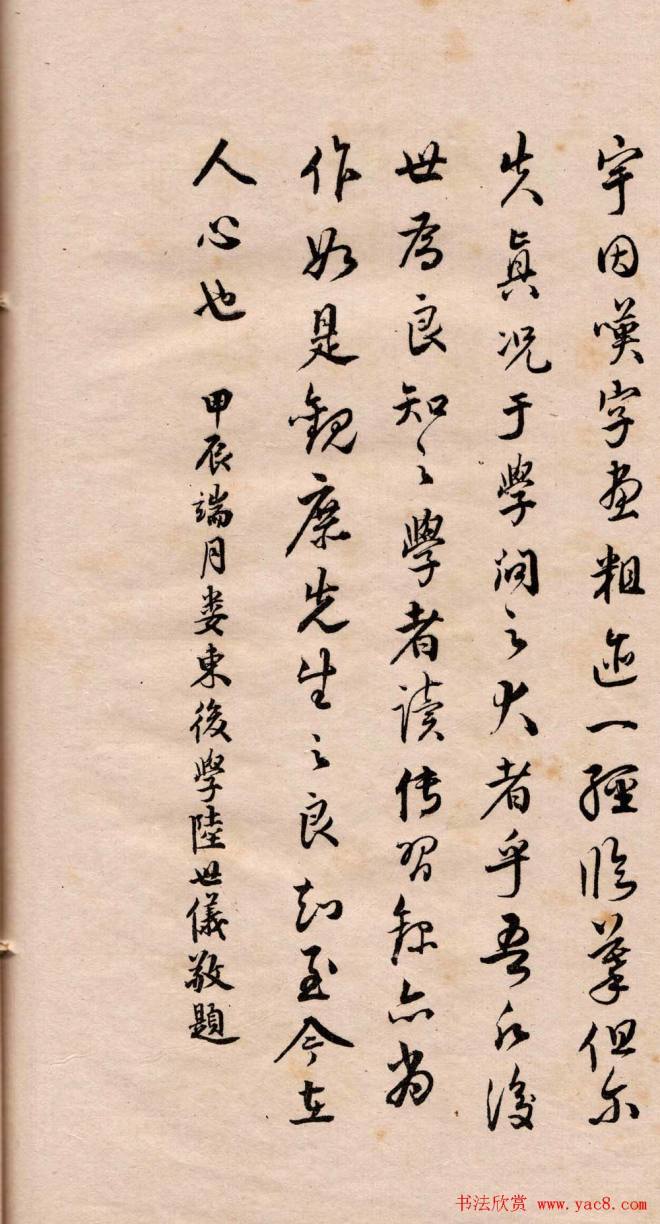 宇因嘆字畫粗迹一經臨摹但尔
失真况于學问之大者乎吾願後
世為良知之學者读传習錄亦當
作如是觀庶先生之良知至今在
人心也
甲辰端月婁東後學陸世儀敬題
书法欣赏 www.yac8.com